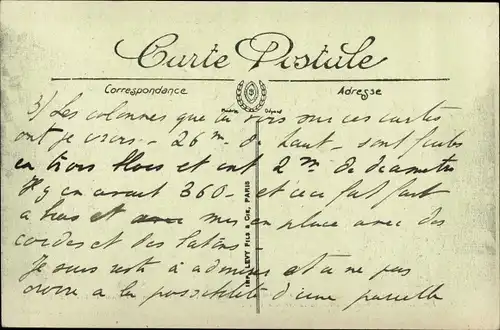 Carte Postale
Correspondance
Adresse
3) Les colonnes que tu vois sur ces cartes
ont je crois - 26m de haut - sont faites
en trois blocs et ont 2m de diamètre
Il y en avait 360 - et ce fut fait
a bras et mis en place avec des
cordes et des bâtons -
Je suis resté à admirer et à ne pas
croire a la possibilité d'une pareille
IMP. LEVY FILS & CIE, PARIS